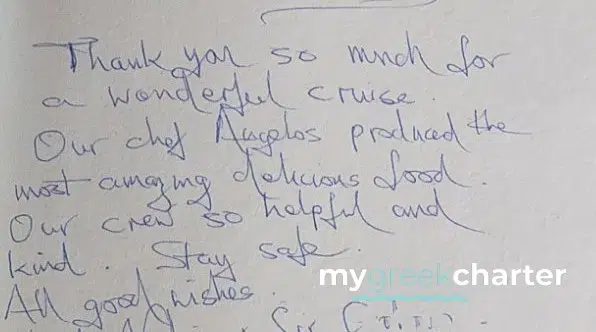 Thank you so much for
a wonderful cruise.
Our chef Angelos produced the
most amazing delicious food.
Our crew so helpful and
kind. Stay safe.
mygreekcharter
All good wishes